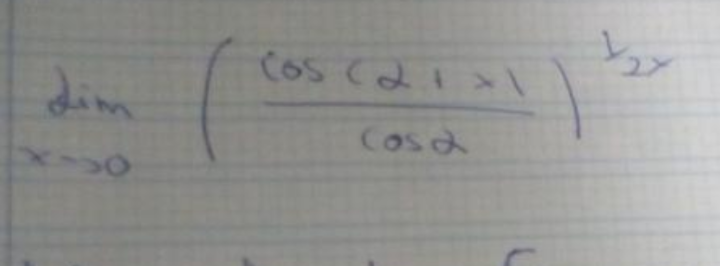 lim x→0 ( cos(α + x) / cos α )^{1/2x}